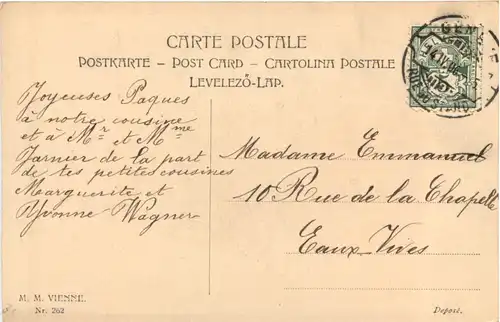 CARTE POSTALE
POSTKARTE – POST CARD – CARTOLINA POSTALE
LEVELEZŐ-LAP.
Joyeuses Paques
à notre cousine
et à Mr et Mme
Jarnier de la part
de tes petites cousines
Marguerite et
Yvonne Wagner
Madame Emmanuel
10 Rue de la Chapelle
Eaux-Vives
M. M. VIENNE.
Nr. 262
Deposé.